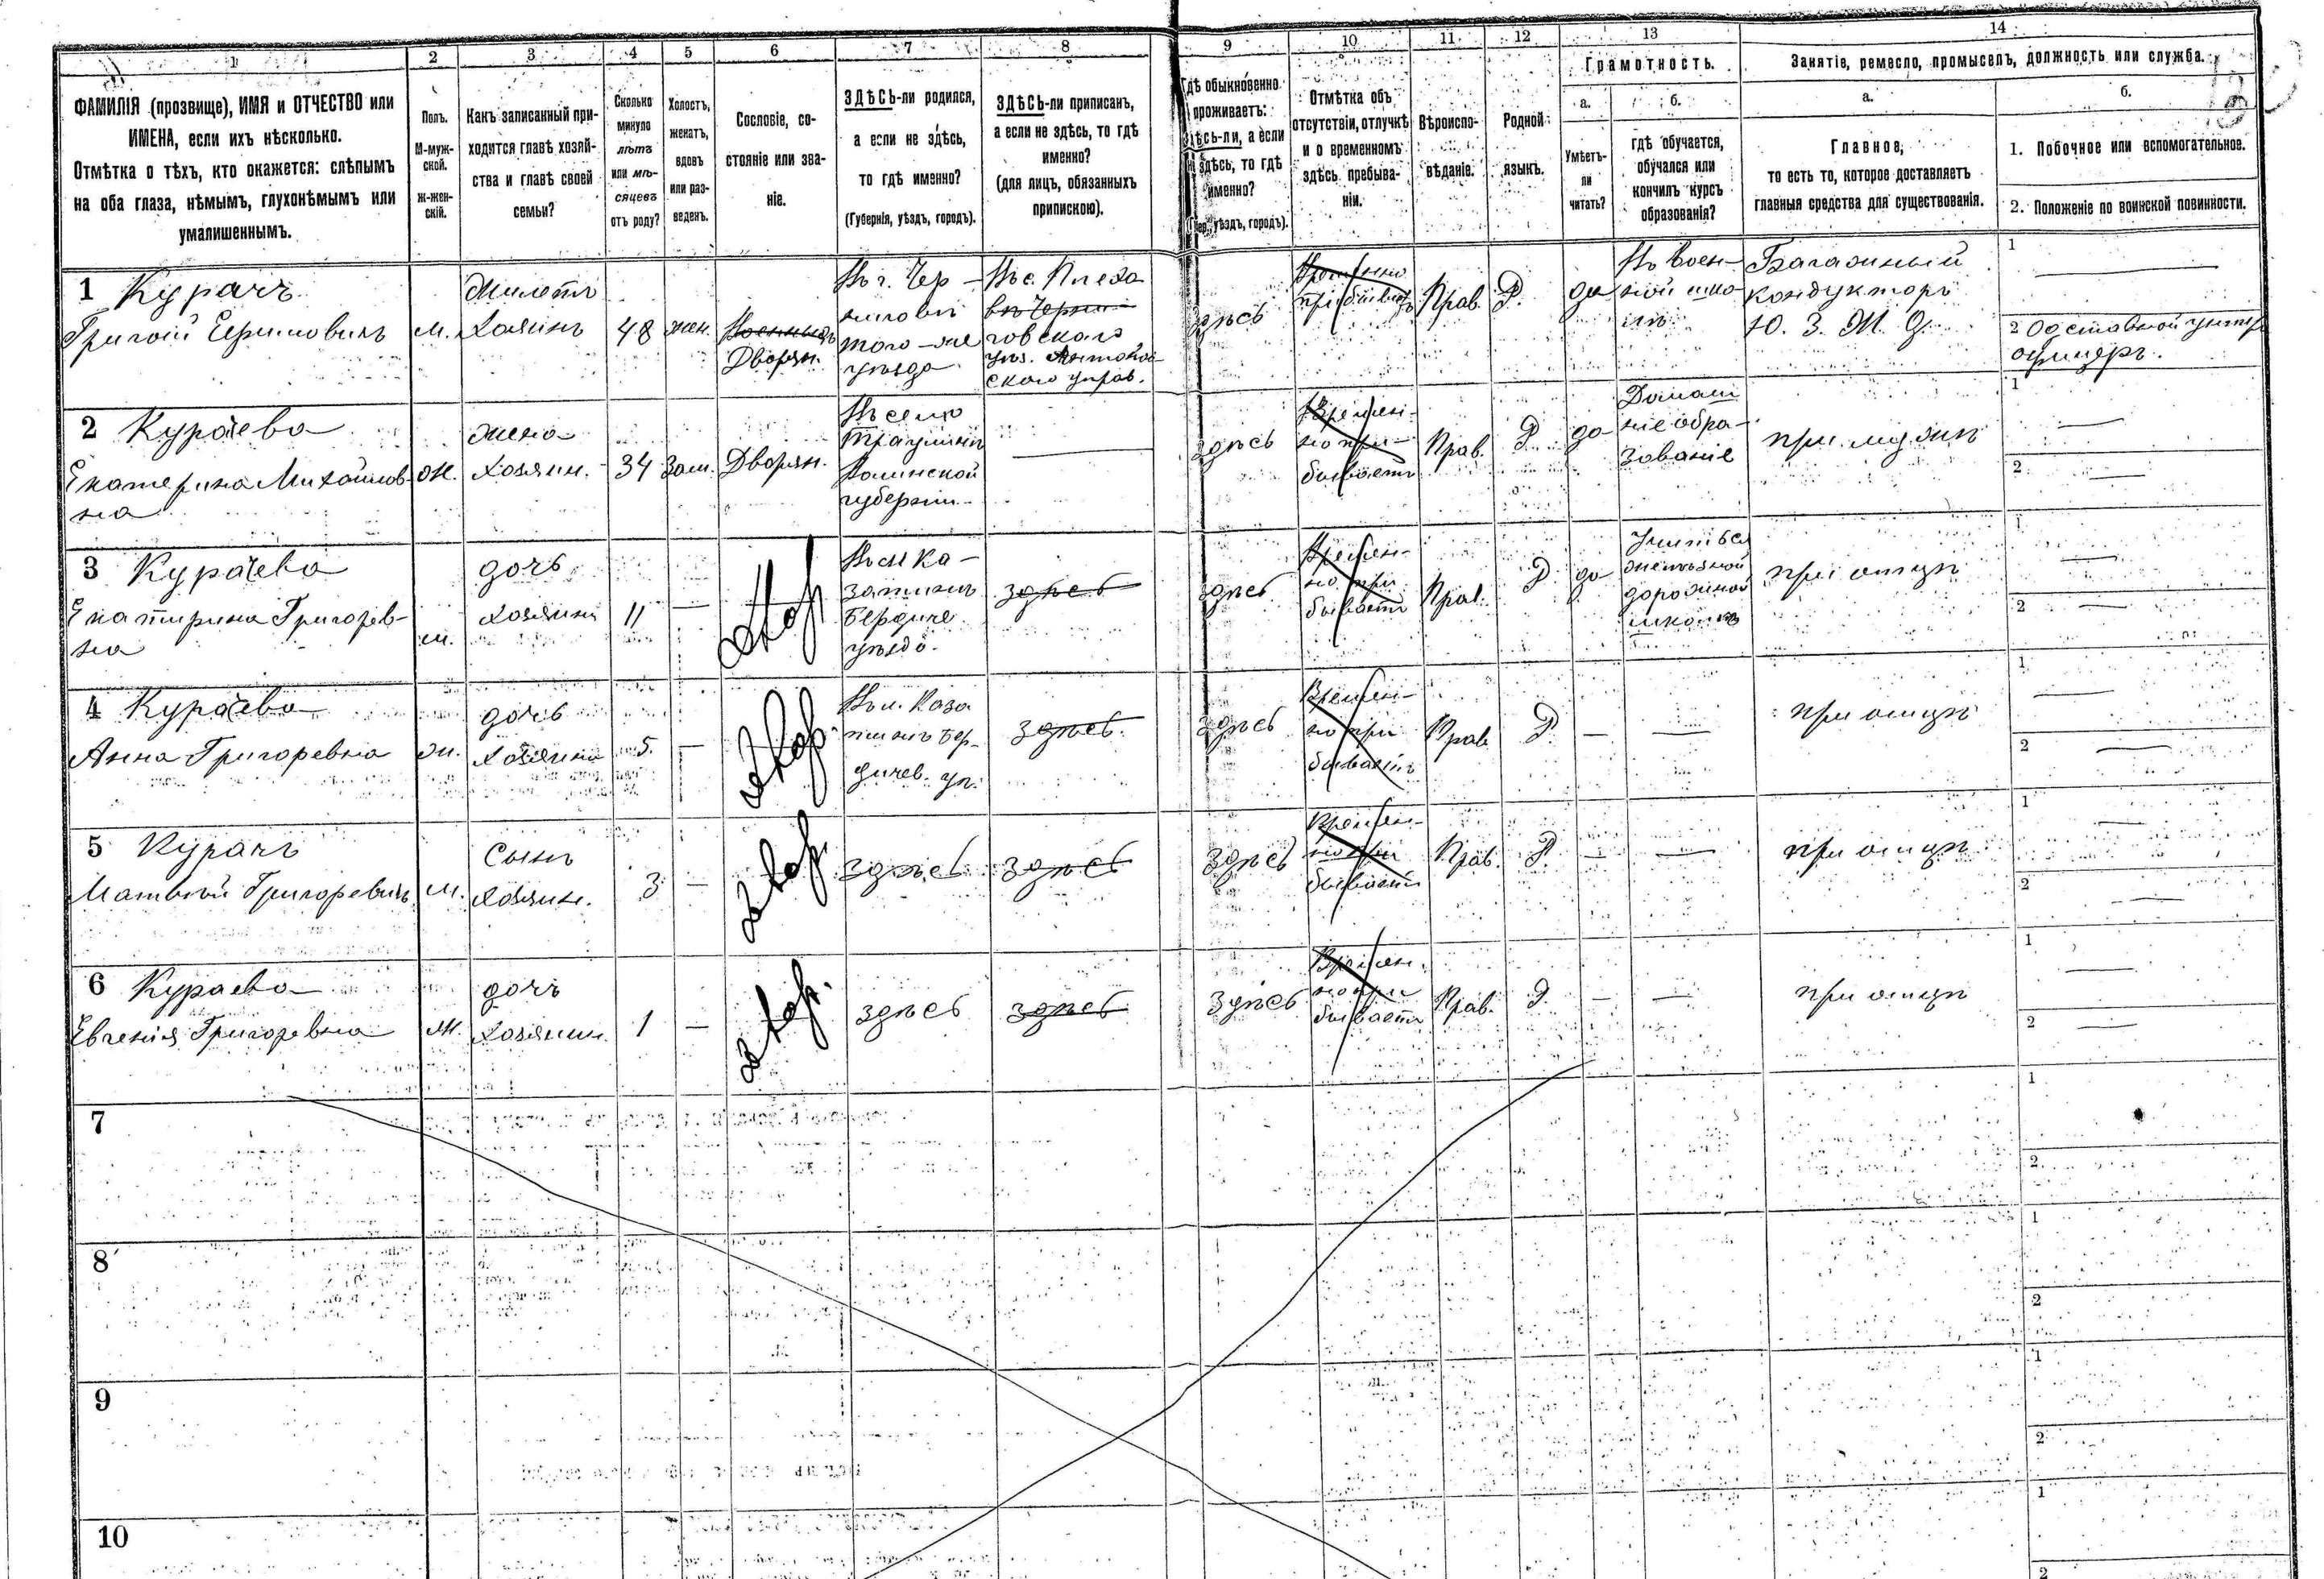 1 2 3 4 5 6 7 8 9 10 11 12 13 14
ФАМИЛІЯ (прозвище), ИМЯ и ОТЧЕСТВО или
ИМЕНА, если ихъ нѣсколько.
Отмѣтка о тѣхъ, кто окажется: слѣпымъ
на оба глаза, нѣмымъ, глухонѣмымъ или
умалишеннымъ.
Полъ.
М-муж-
ской.
Ж-жен-
скій.
Какъ записанный при-
ходится главѣ хозяй-
ства и главѣ своей
семьи?
Сколько
минуло
лѣтъ
или мѣ-
сяцевъ
отъ роду?
Холостъ,
женатъ,
вдовъ
или раз-
веденъ.
Сословіе, со-
стояніе или зва-
ніе.
ЗДѢСЬ-ли родился,
а если не здѣсь,
то гдѣ именно?
(Губернія, уѣздъ, городъ).
ЗДѢСЬ-ли приписанъ,
а если не здѣсь, то гдѣ
именно?
(для лицъ, обязанныхъ
припискою).
Гдѣ обыкновенно
проживаетъ:
здѣсь-ли, а если
не здѣсь, то гдѣ
именно?
(Губ., уѣздъ, городъ).
Отмѣтка объ
отсутствіи, отлучкѣ
и о временномъ
здѣсь пребыва-
ніи.
Вѣроиспо-
вѣданіе.
Родной
языкъ.
Грамотность.
а.
Умѣетъ-
ли
читать?
б.
гдѣ обучается,
обучался или
кончилъ курсъ
образованія?
Занятіе, ремесло, промыселъ, должность или служба.
а.
Главное,
то есть то, которое доставляетъ
главныя средства для существованія.
б.
1. Побочное или вспомогательное.
2. Положеніе по воинской повинности.
1 Курачъ
м.
Хозяинъ
48
жен.
Дворян.
Въ г. Чер-
того-же
уѣзда
говского
здѣсь
Прав.
Р.
да
Въ воен-
ной шко-
лѣ
Багажный
кондукторъ
Ю. З. Ж. Д.
1
2 Отставной унтер
офицеръ.
2 Кураева
Екатерина Михайлов-
на
ж.
жена
Хозяин.
34
Зам.
Дворян.
губерніи
здѣсь
Времен-
но при-
бываетъ
Прав.
Р.
да
Домаш
ніе обра-
зованіе
при мужѣ
1
2
3 Кураева
Екатирина Григорев-
на
дочь
Хозяина
11
Двор.
Бердиче
уѣзда.
здѣсь
здѣсь
Времен-
но при
бываетъ
Прав.
Р.
да
школѣ
при отцѣ
1
2
4 Кураева
Анна Григоревна
ж.
дочь
Хозяина
5.
Двор.
дичев. уѣ.
здѣсь.
здѣсь
Времен-
но при
бываетъ
Прав.
Р.
при отцѣ
1
2
5 Курачъ
Матвей Григоревичъ
м.
Сынъ
Хозяин.
3
Двор.
здѣсь
здѣсь
здѣсь
Времен-
но при
бываетъ
Прав.
Р.
при отцѣ
1
2
6 Кураева
Евгенія Григоревна
ж.
дочъ
Хозяин.
1
Двор.
здѣсь
здѣсь
здѣсь
Времен.
но при
бываетъ
Прав.
Р.
при отцѣ
1
2
7
1
2
8
1
2
9
1
2
10
1
2